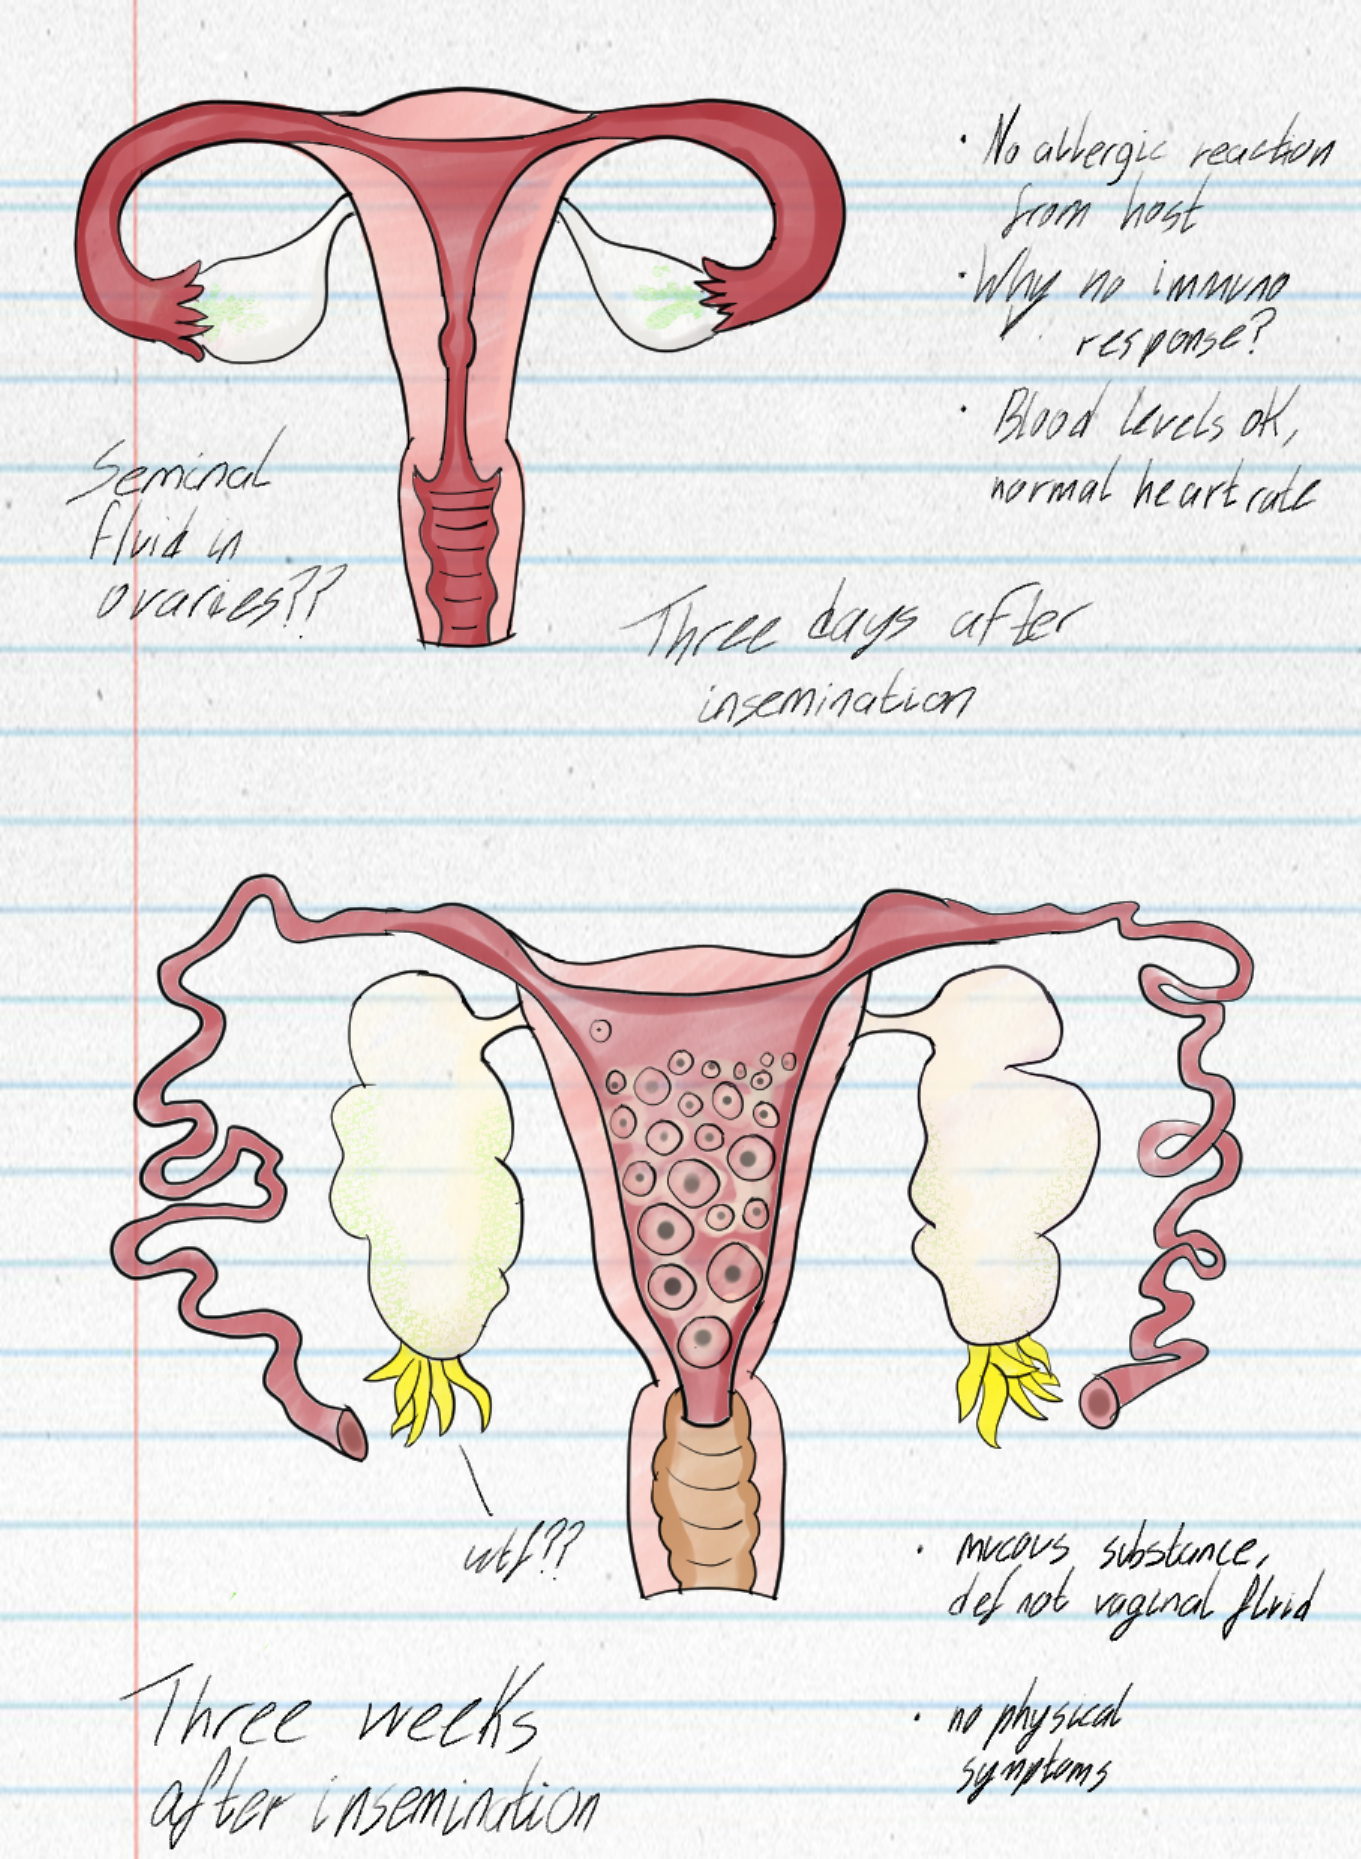 · No allergic reaction
from host
· Why no immuno
response?
· Blood levels ok,
normal heart rate
Seminal
fluid in
ovaries??
Three days after
insemination
wtf??
· mucous substance,
def not vaginal fluid
· no physical
symptoms
Three weeks
after insemination